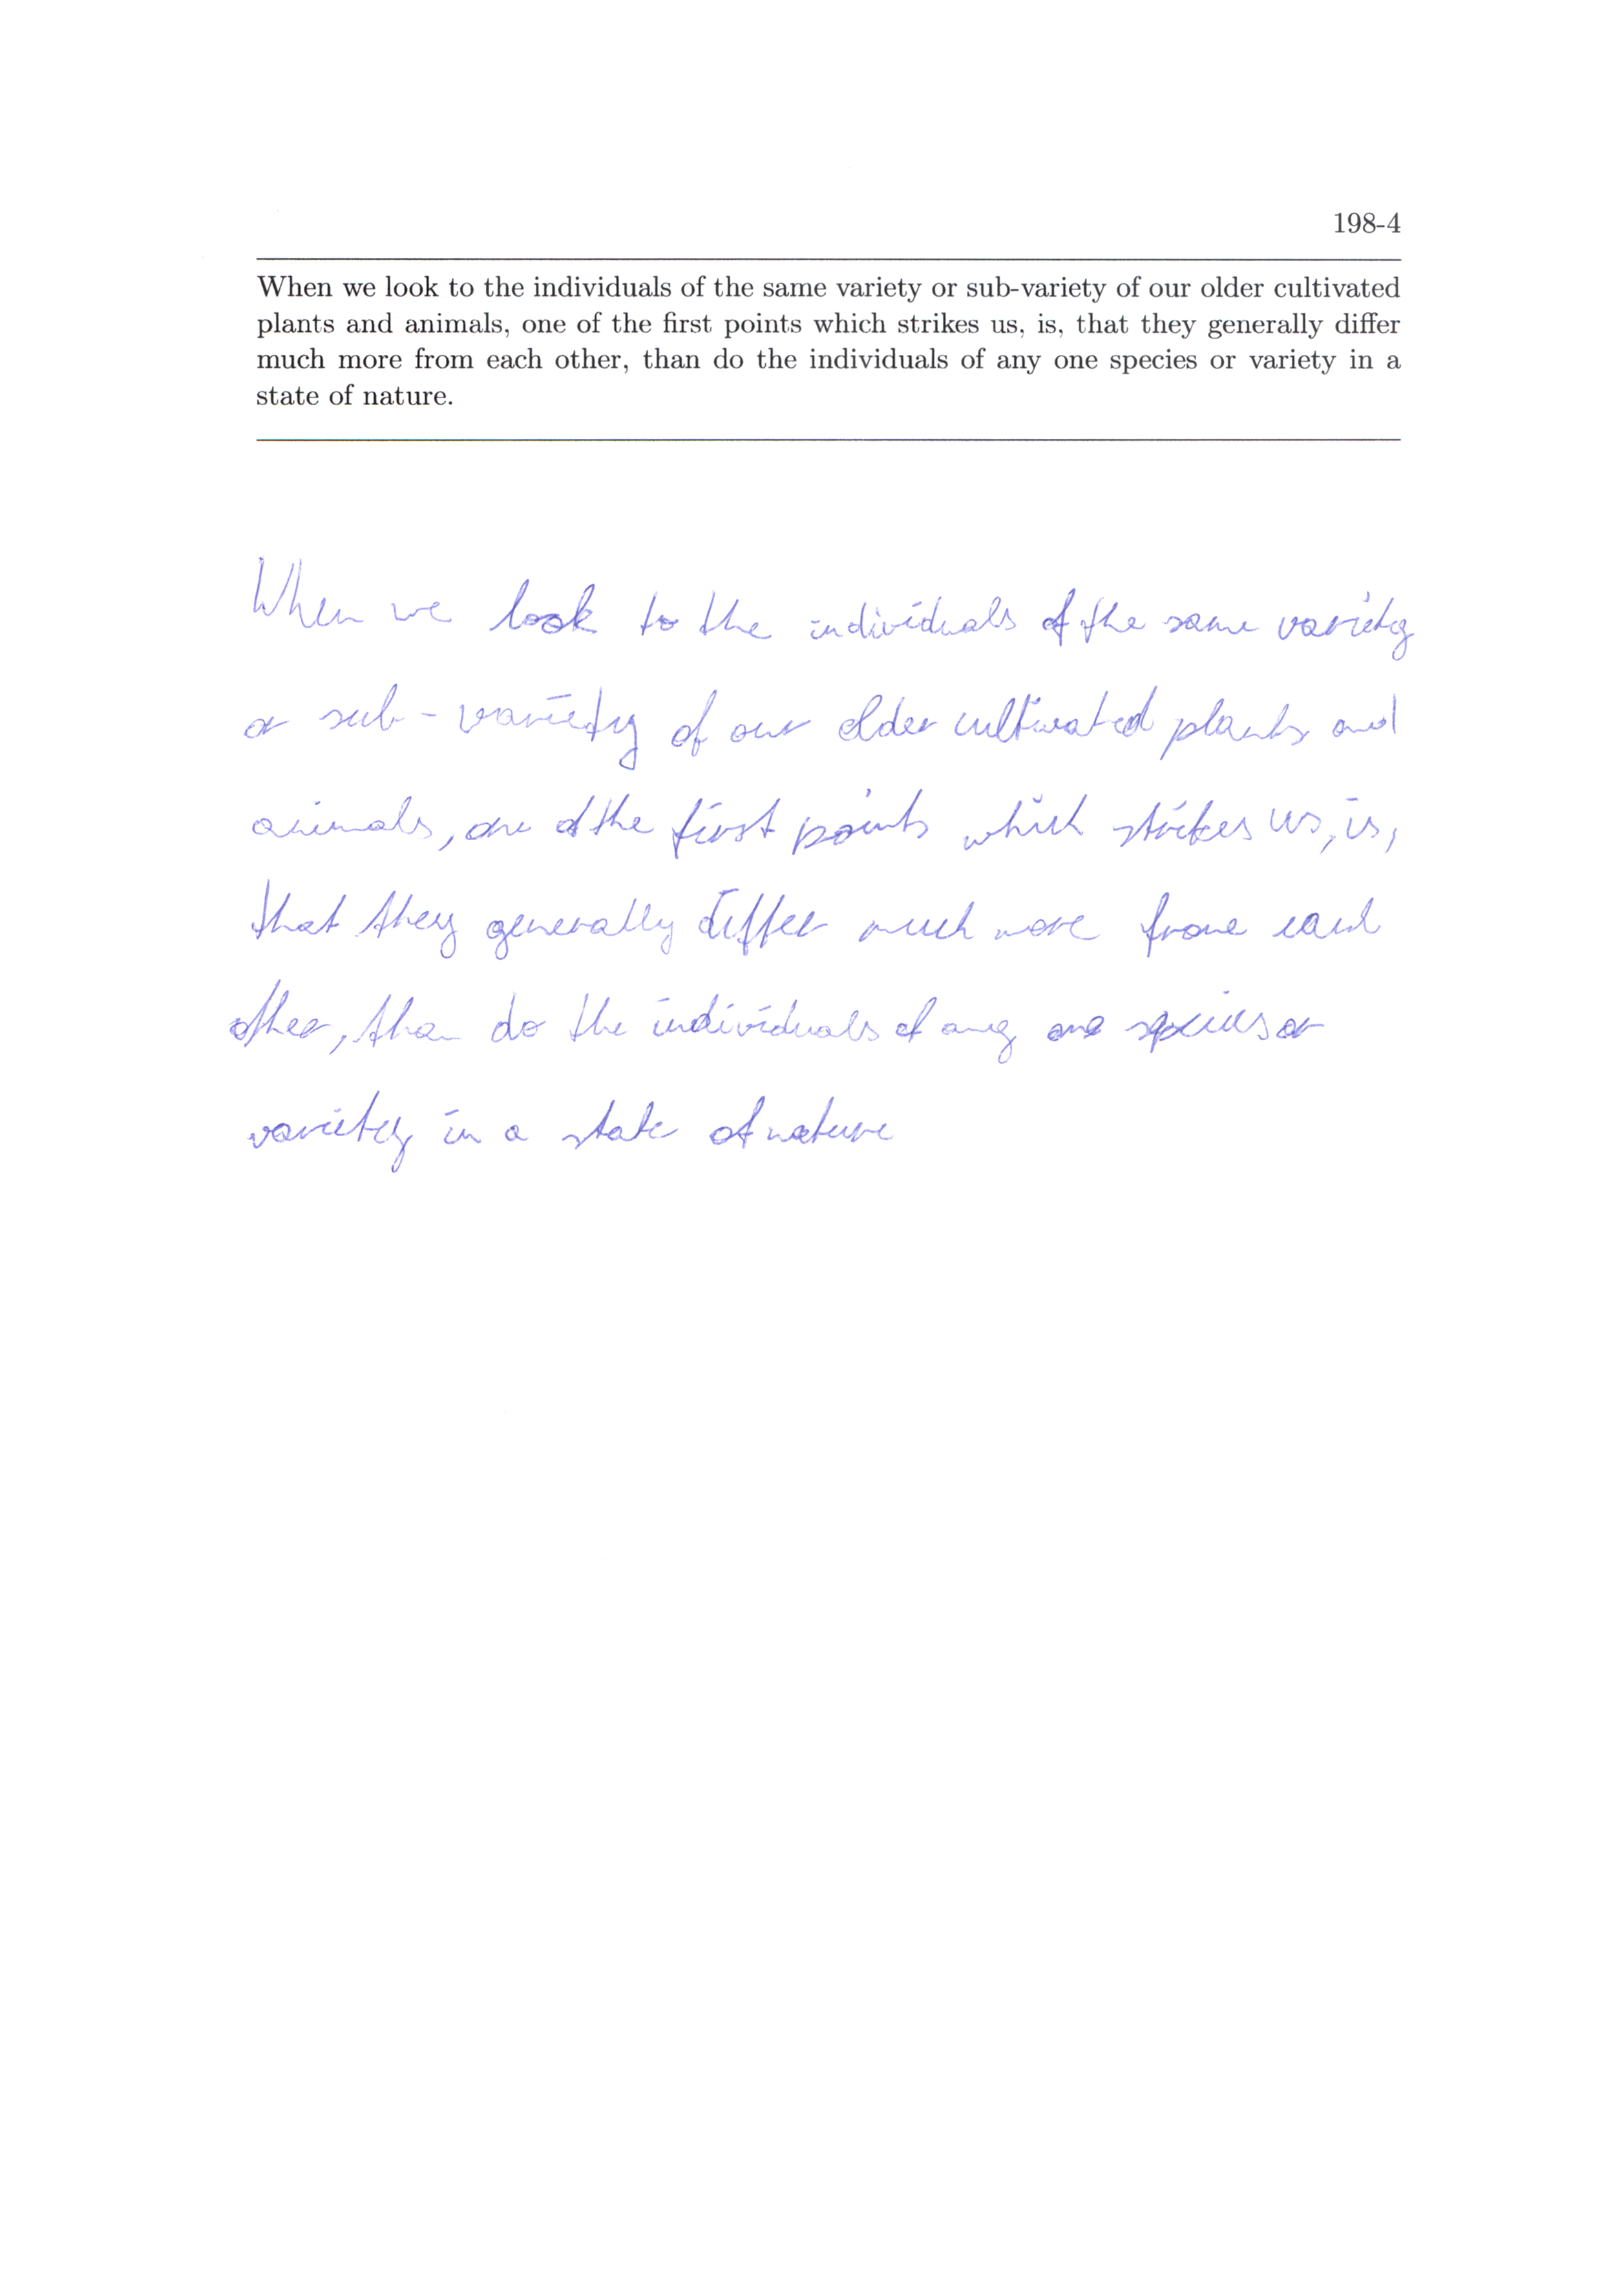 198-4
When we look to the individuals of the same variety or sub-variety of our older cultivated
plants and animals, one of the first points which strikes us, is, that they generally differ
much more from each other, than do the individuals of any one species or variety in a
state of nature.
When we look to the individuals of the same variety
or sub-variety of our older cultivated plants and
animals, one of the first points which strikes us, is,
that they generally differ much more from each
other, than do the individuals of any one species or
variety in a state of nature